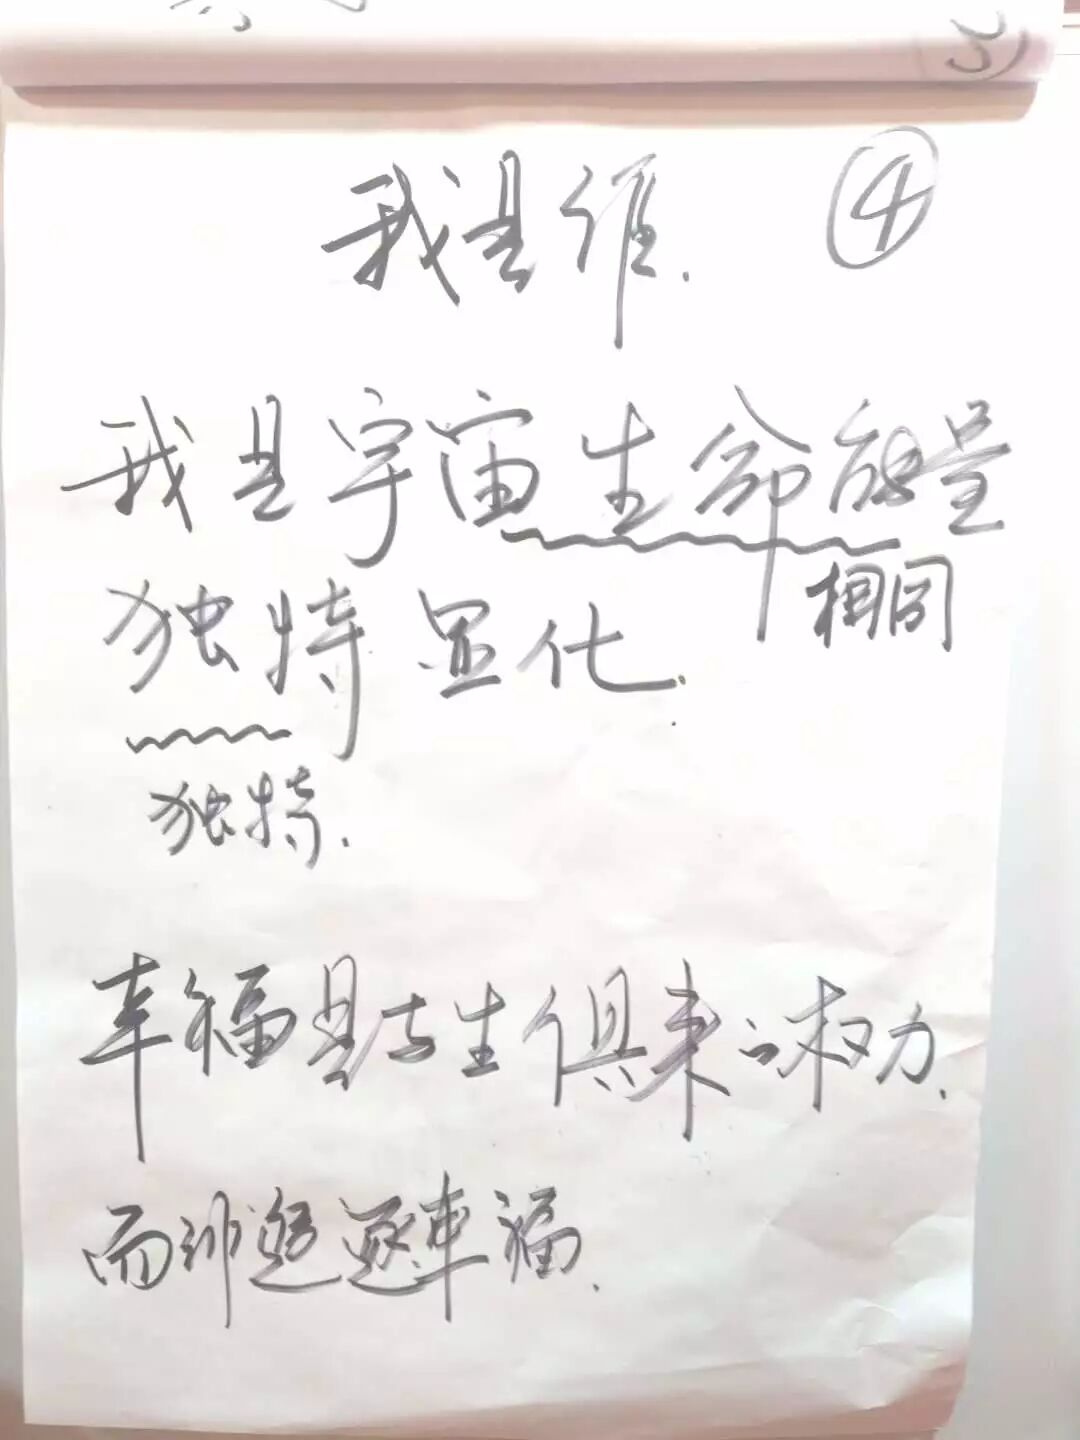 我是谁.
④
我是宇宙生命能量
相同
独特显化.
独特.
幸福是与生俱来的权力.
而非追逐幸福.